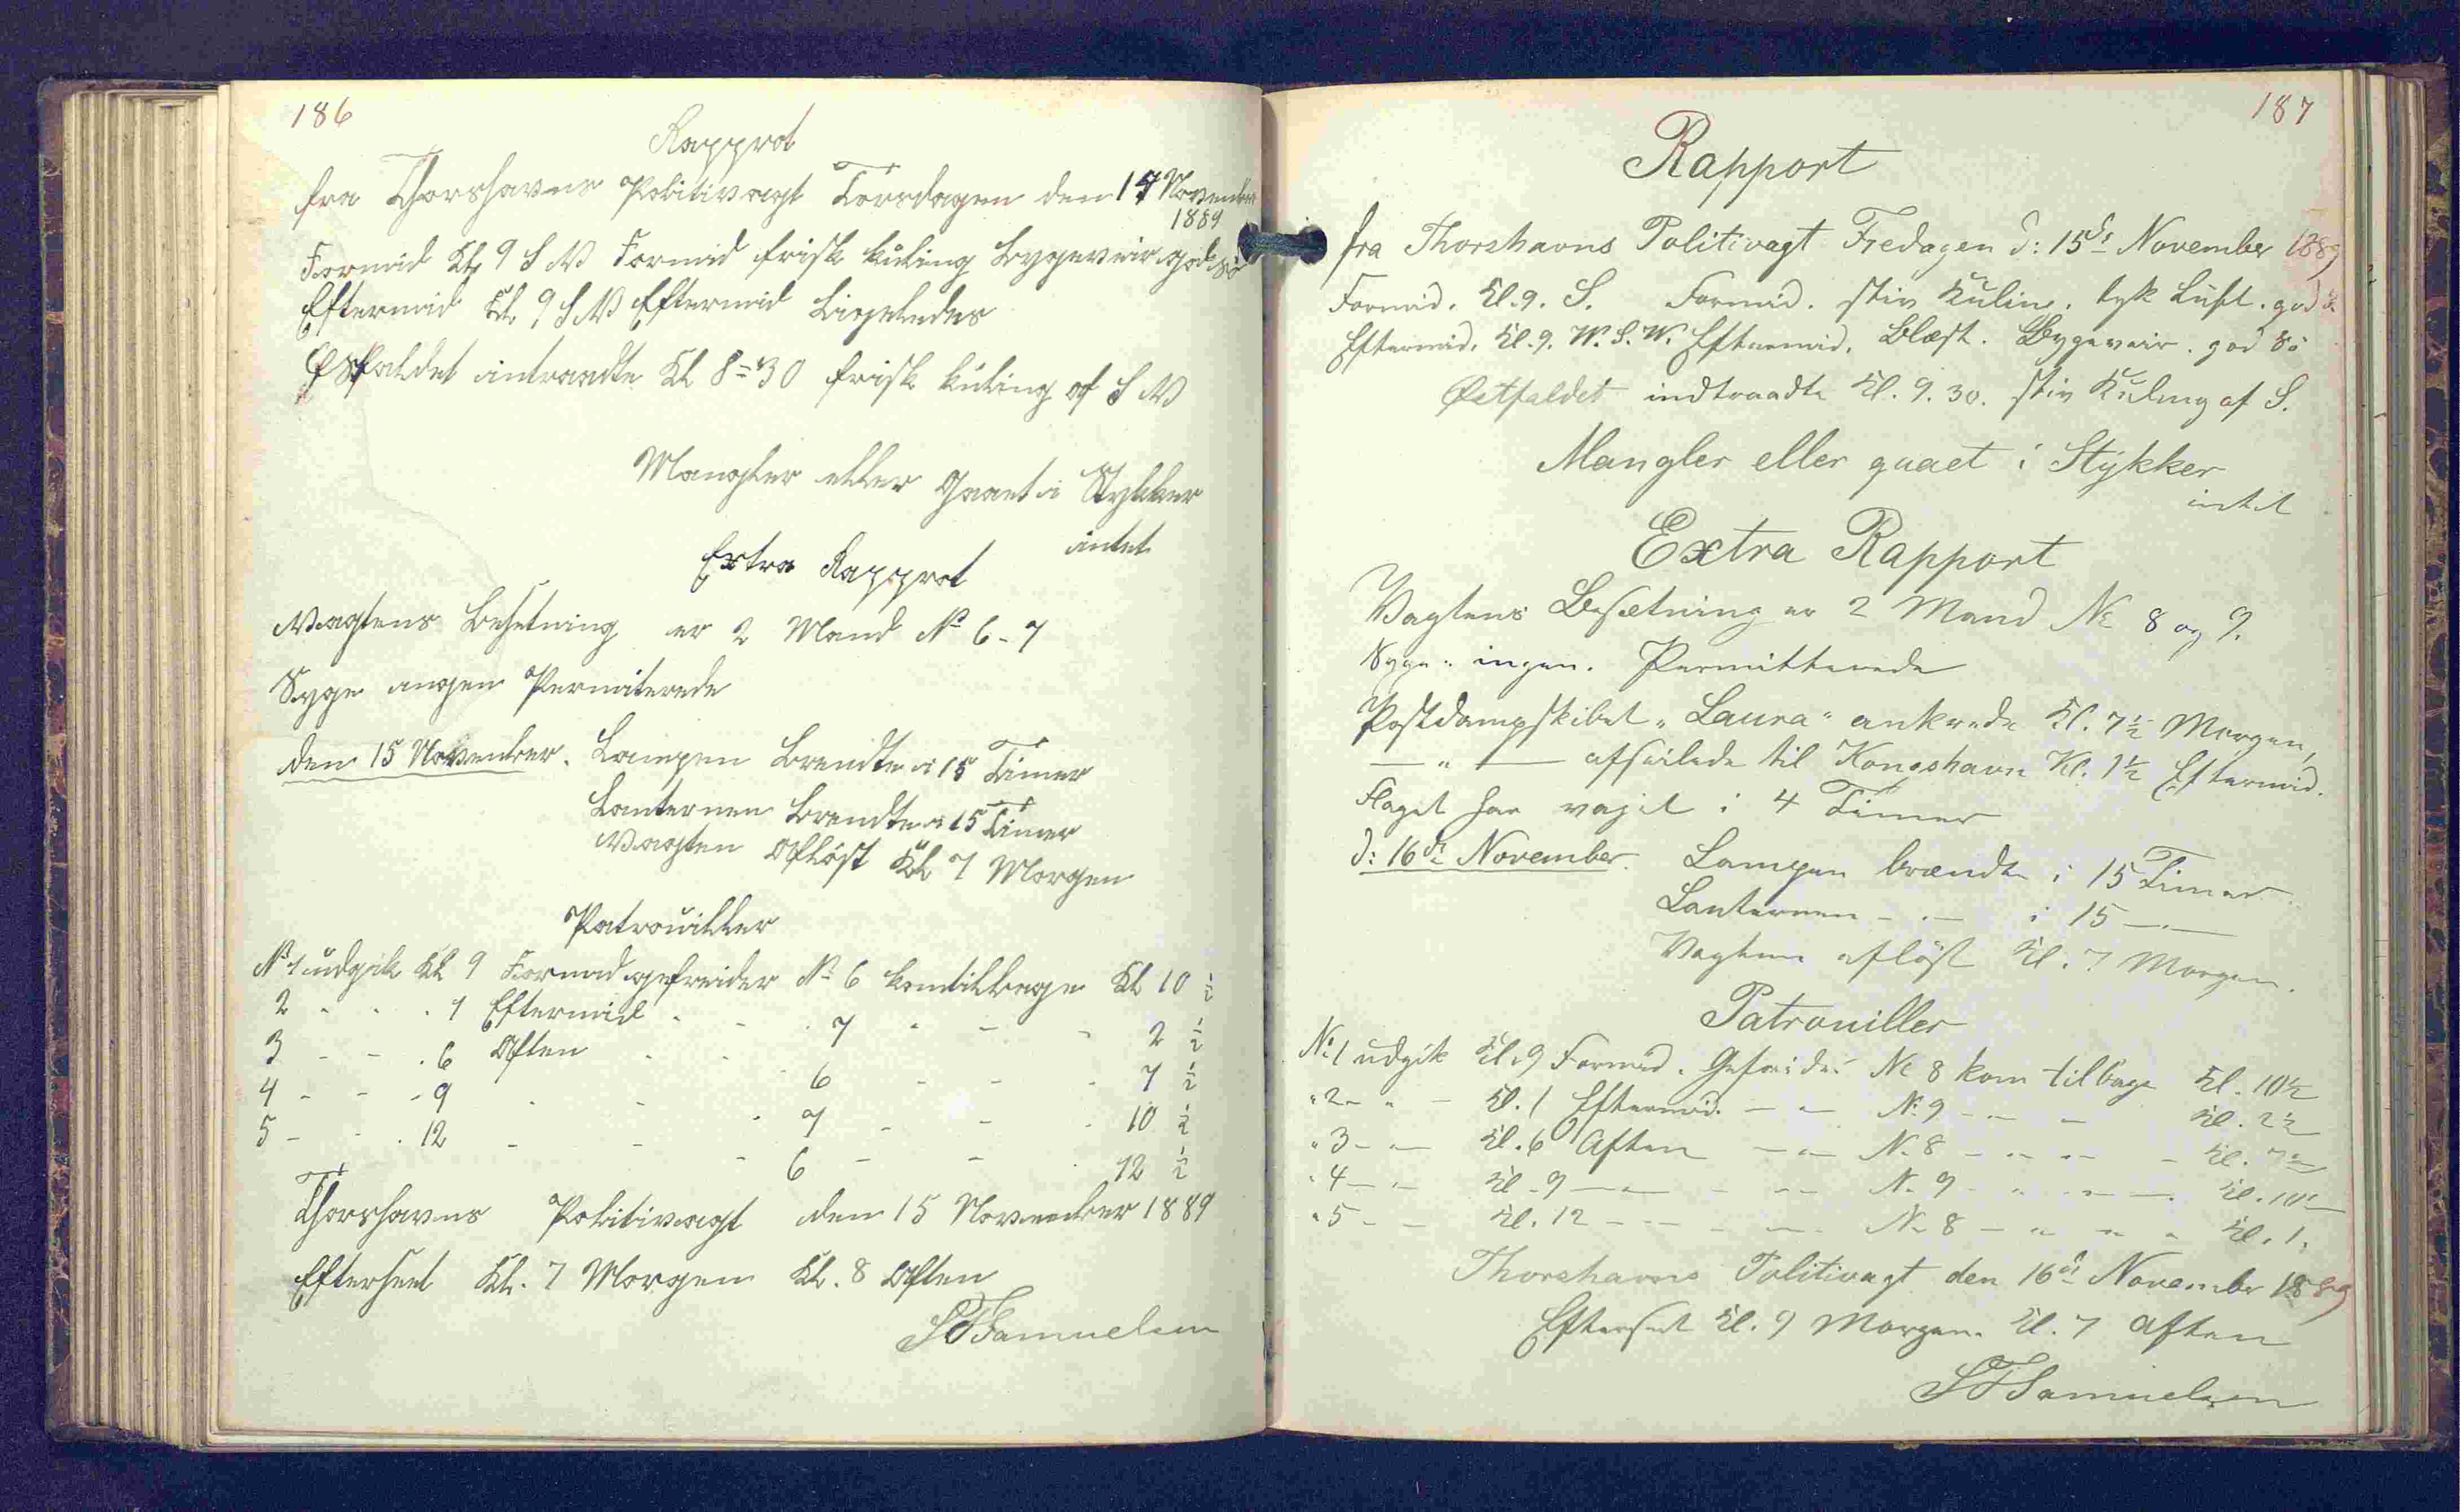 186
Rapprot
fra Thorshavns Politivagt Torsdagen den 14 November
1889
Formid Kl 9 S W Formid frisk kuling Bygeveir god Sö
Eftermid Kl 9 S W Eftermid Ligeledes
Østfaldet intraadte Kl 8=30 frisk kuling af S W
Mangler eller Gaaet i Stykker
intet
Extra Rapprot
Vagtens Besetning er 2 Mand No 6-7
Syge ingen Permiterede
den 15 November. Lampen Brendte i 15 Timer
Lanternen Brendte i 15 Timer
Vagten Afløst Kl 7 Morgen
Patrouiller
No 1 udgik Kl 9 Formid gefreider No 6 kom tilbage Kl 10 ½
2 - - . 1 Eftermid - - . 7 - - - 2 ½
3 - - . 6 Aften - - - 6 - - - 7 ½
4 - - - 9 - - - 7 - - - 10 ½
5 - - . 12 - - - 6 - - - 12 ½
Thorshavns Politivagt den 15 November 1889
Efterseet Kl. 7 Morgen Kl. 8 Aften
Samuelsen
187
Rapport
fra Thorshavns Politivagt Fredagen d: 15de November 1889
Formid. Kl. 9. S. Formid. stiv Kuling. tyk Luft. god Sö
Eftermid. Kl. 9. W.S.W. Eftermid. Blæst. Bygeveir. god Sö
Østfaldet indtraadte Kl. 9.30. stiv Kuling af S.
Mangler eller gaaet i Stÿkker
intet
Extra Rapport
Vagtens Besætning er 2 Mand No 8 og 9.
Syge " ingen. Permitterede
Postdampskibet "Laura" ankrede Kl. 7½ Morgen,
— " — afseilede til Kongshavn Kl. 1½ Eftermid.
Flaget har vajet i 4 Timer
d: 16de November. Lampen brændte i 15 Timer.
Lanternen - . — i 15 —.—
Vagten afløst Kl. 7 Morgen.
Patrouiller
No 1 udgik Kl. 9 Formid. Gefreider No 8 kom tilbage Kl. 10½
" 2 - " - Kl. 1 Eftermid. - " - No 9 - " - Kl. 2½
" 3 - " - Kl. 6 Aften - " - No 8 - " - " - Kl. 7½
" 4 - " - Kl. 9 - " - - " - No 9 - " - " - Kl. 10½
" 5 - - Kl. 12 - " - - " - No 8 - " " " Kl. 1.
Thorshavns Politivagt den 16de November 1889
Efterseet Kl. 9 Morgen. Kl. 7 Aften
Samuelsen